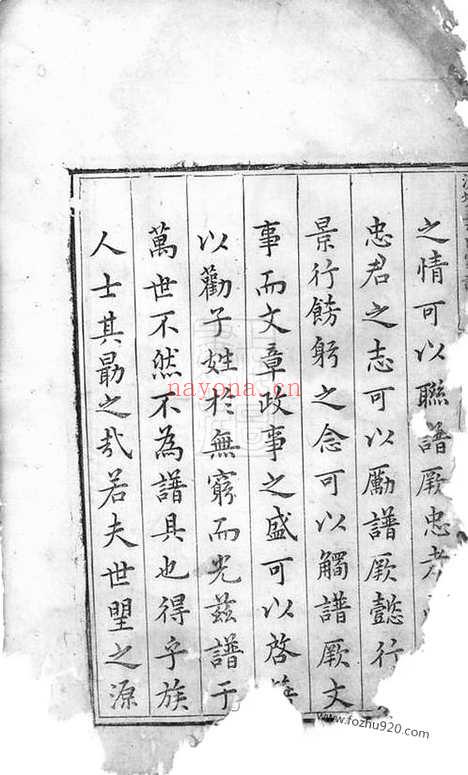 之情可以聯譜厥忠孝
忠君之志可以勵譜厥懿行
景行飭躬之念可以觸譜厥文
事而文章政事之盛可以啓
以勸子姓於無窮而光茲譜于
萬世不然不為譜具也得乎族
人士其勗之哉若夫世墅之源
nayona.cn
www.fozhu920.com